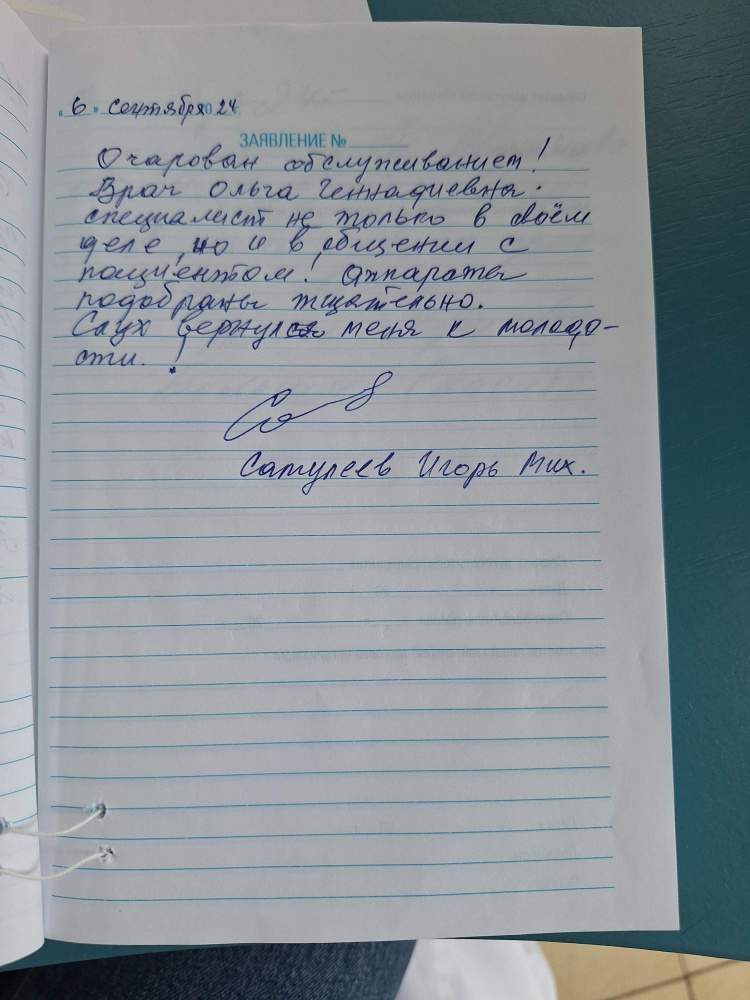 " 6 " сентября 20 24 г.
ЗАЯВЛЕНИЕ №
Очарован обслуживанием!
Врач Ольга Геннадиевна -
специалист не только в своём
деле, но и в общении с
пациентом! Аппараты
подобраны тщательно.
Слух вернул меня к молодо-
сти!
Сатулеев Игорь Мих.